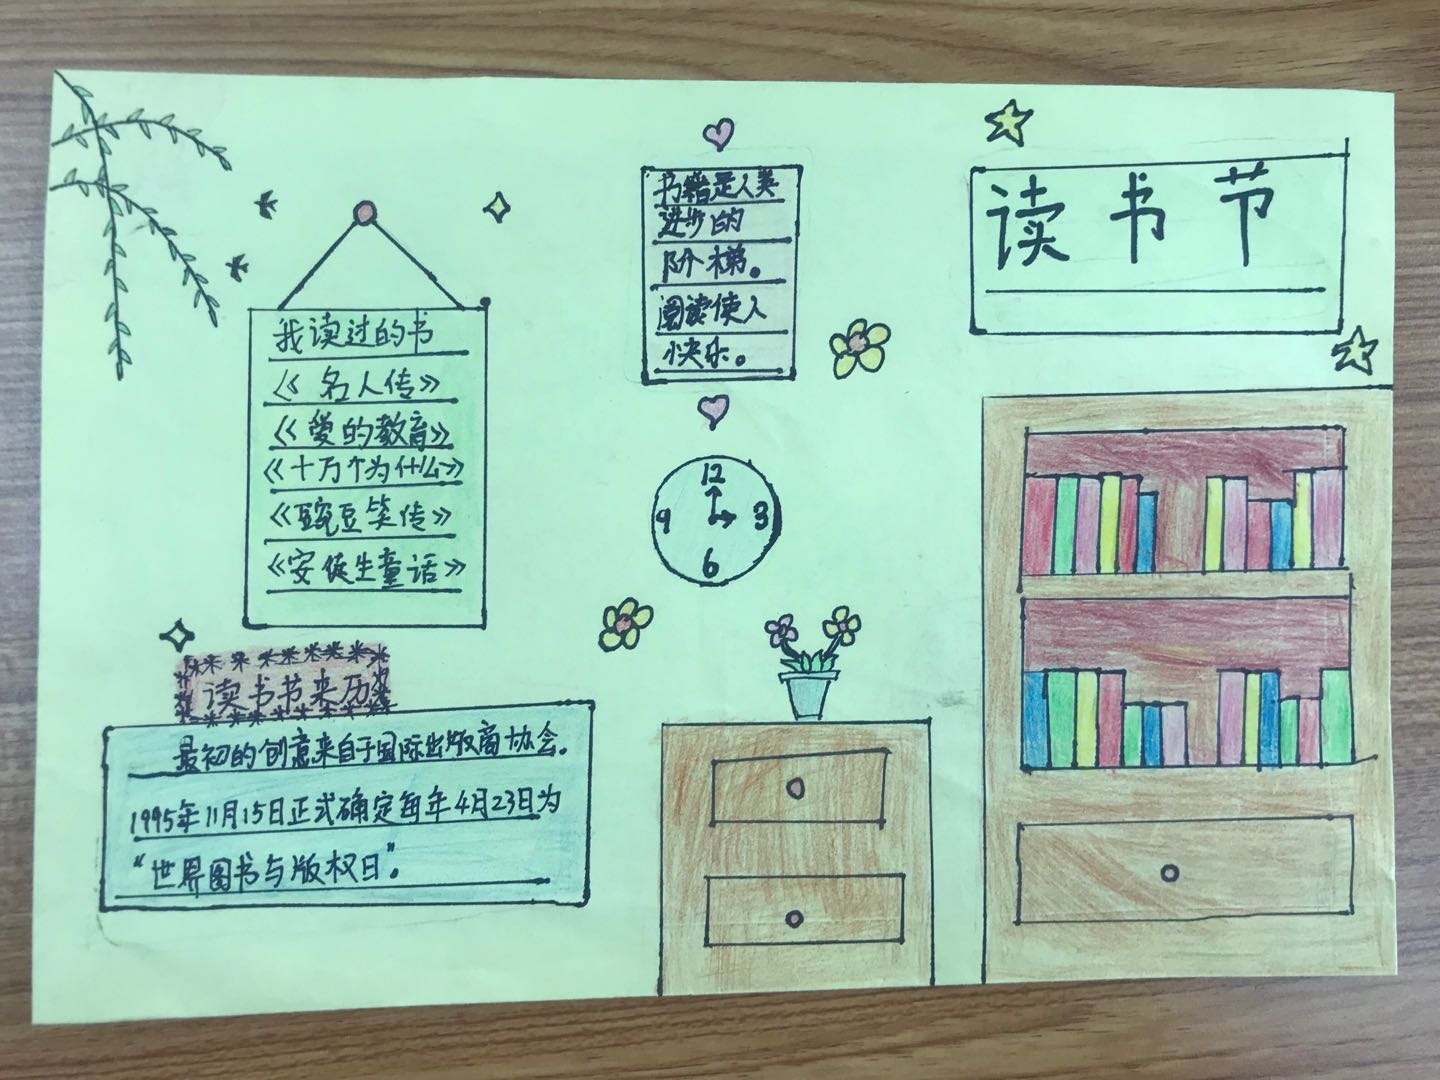 读书节
书籍是人类
进步的
阶梯。
阅读使人
快乐。
我读过的书
《名人传》
《爱的教育》
《十万个为什么》
《豌豆笑传》
《安徒生童话》
12
9 3
6
读书节来历
最初的创意来自于国际出版商协会。
1995年11月15日正式确定每年4月23日为
“世界图书与版权日”。